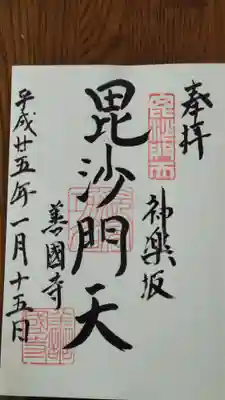 奉拝
神楽坂
毘沙門天
毘沙門天
善國寺
平成廿五年一月十五日